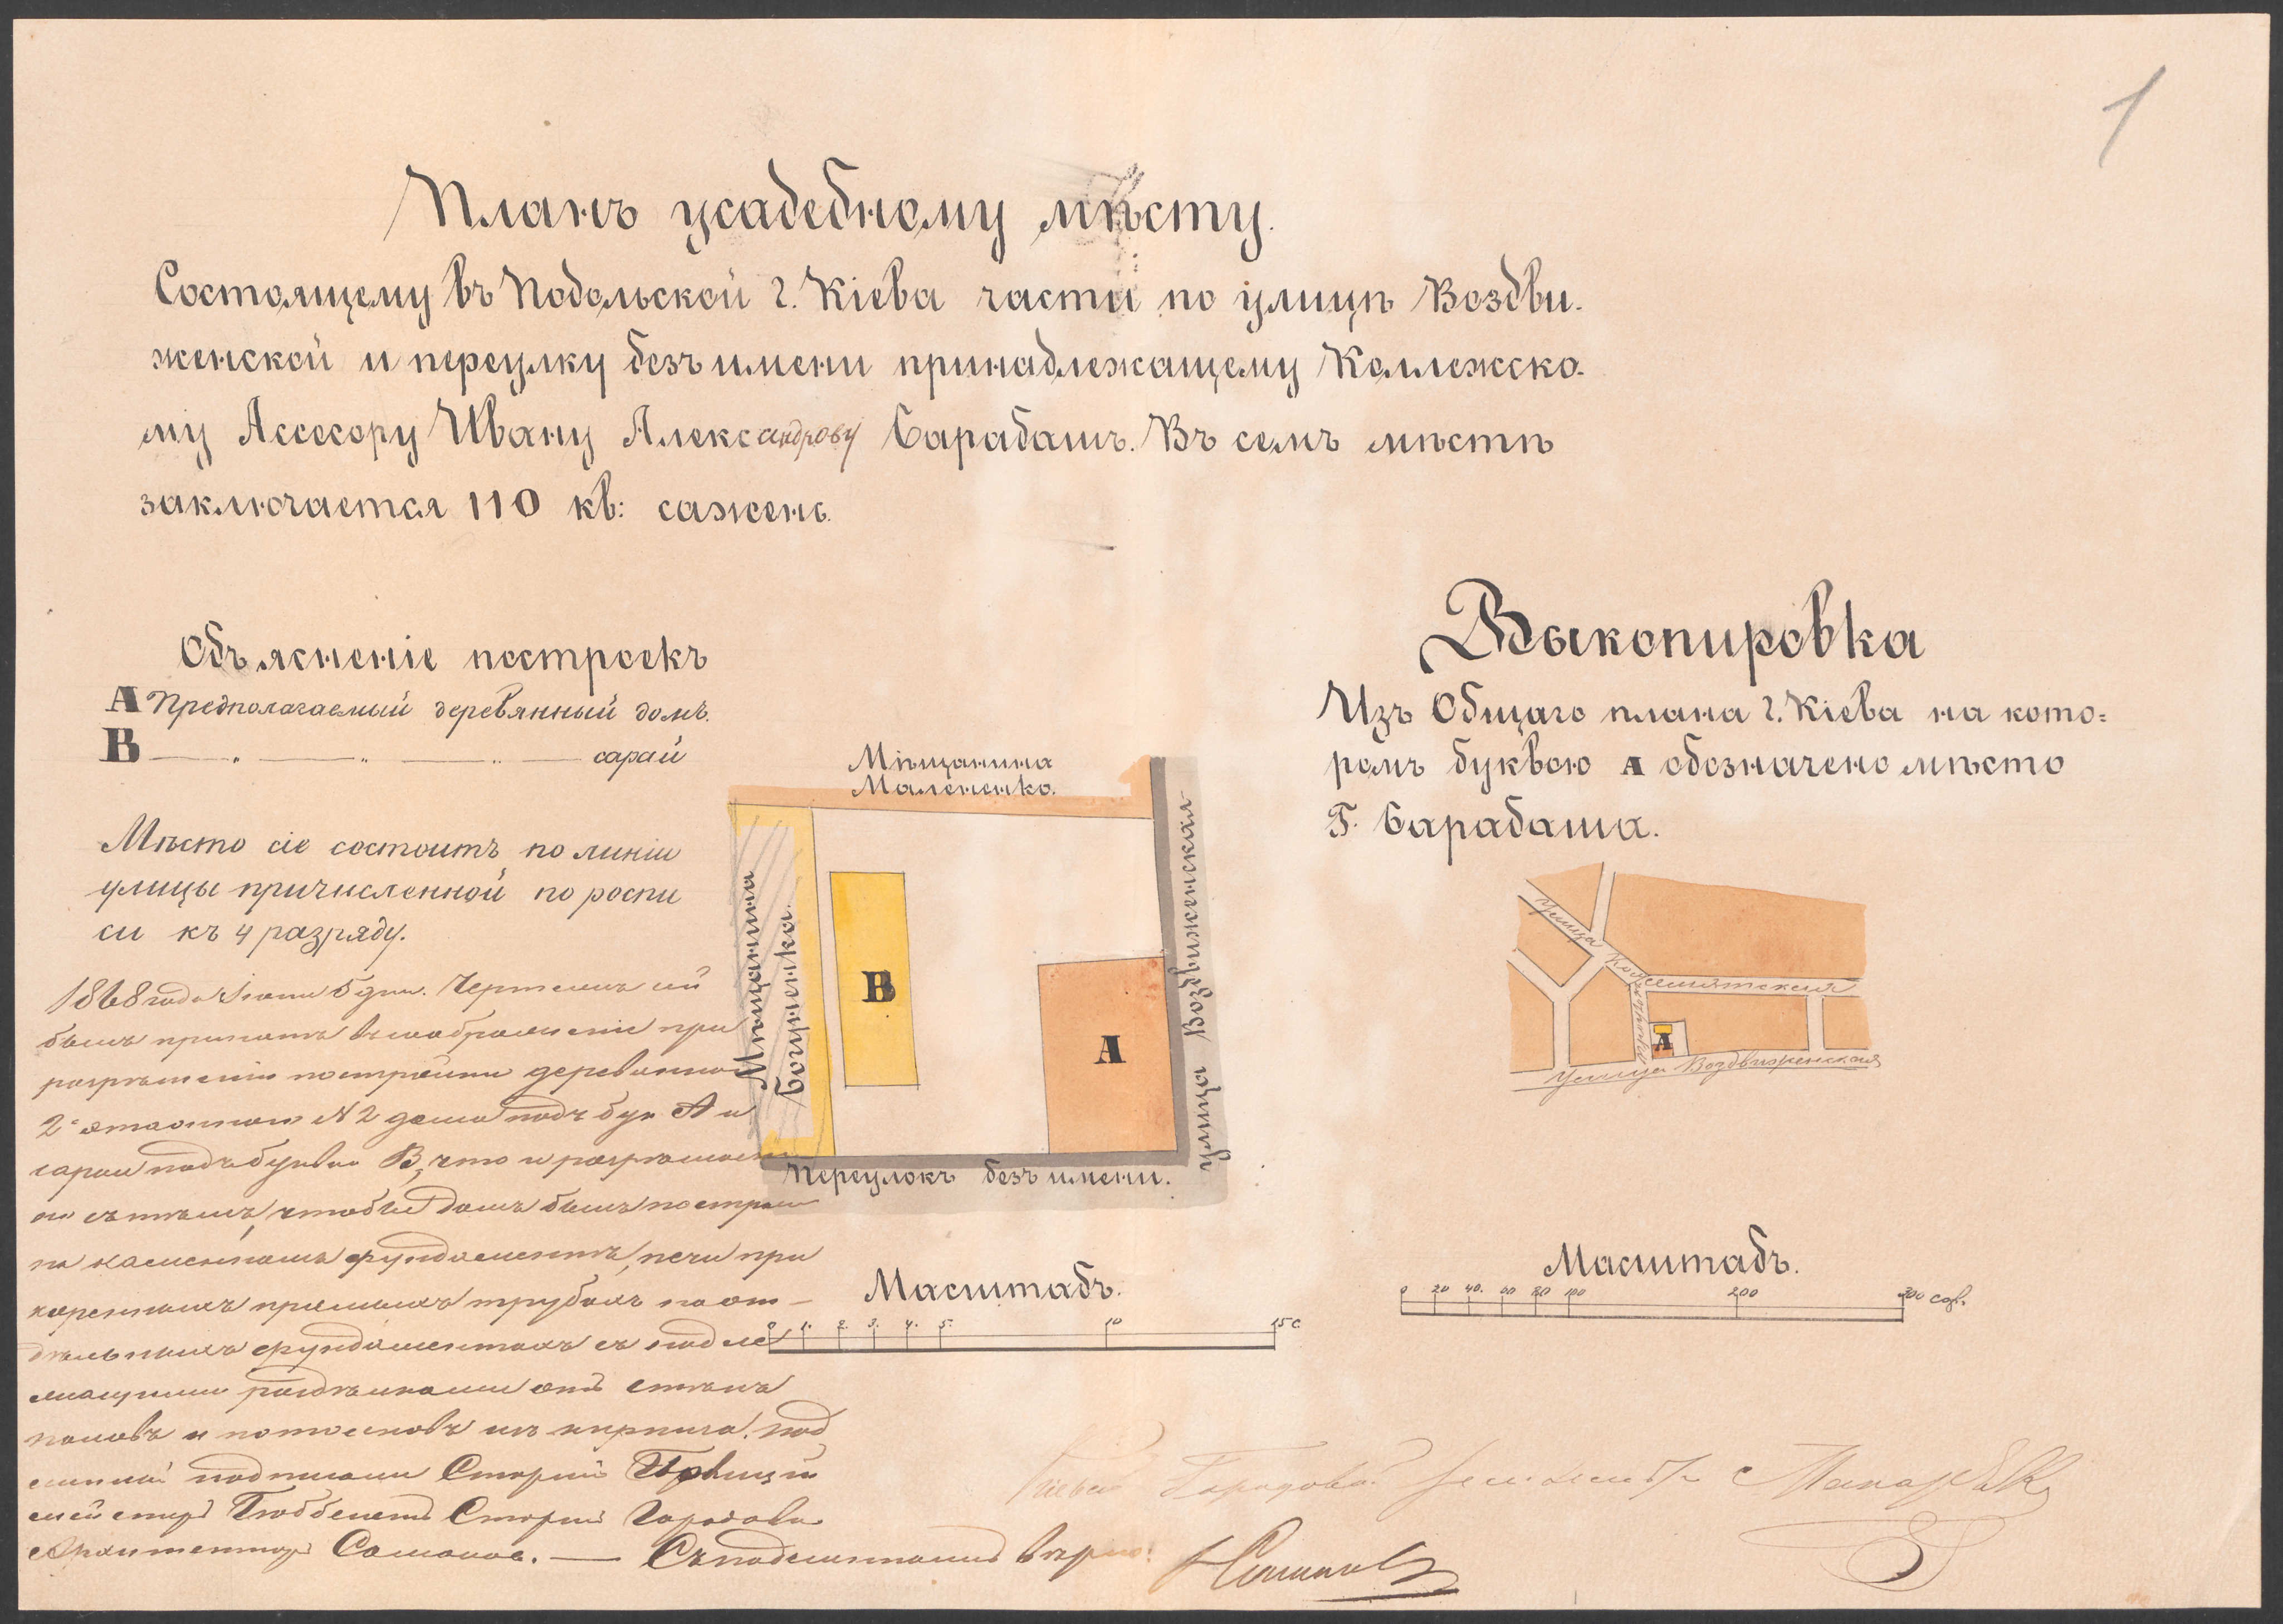 1
Планъ усадебному мѣсту.
Состоящему въ Подольской г. Кіева части по улицѣ Воздви-
женской и переулку безъ имени принадлежащему Коллежско-
му Ассесору Ивану Александрову Сарабашъ. Въ семъ мѣстѣ
заключается 110 кв: сажень.
Объясненіе построекъ
А Предполагаемый деревянный домъ.
В — „ — „ — „ — сарай
Мѣсто сіе состоитъ по линіи
улицы причисленной по роспи
си къ 4 разряду.
1868 года Іюня 5 дня. Чертежъ сей
былъ принятъ въ соображеніе при
разрѣшеніи постройки деревянного
2х этажного N 2 дома подъ бук А и
сарая подъ буквою В, что и разрѣшает
съ тѣмъ, чтобы домъ былъ построен
на каменномъ фундаментѣ, печи при
коренныхъ прямыхъ трубахъ на от-
дѣльныхъ фундаментахъ съ надле
жащими раздѣлками отъ стѣнъ
половъ и потолковъ изъ кирпича. Под
линный подписали Старшій
Старшій Городовой
Архитекторъ — Съ подлиннымъ вѣрно:
Мѣщанина
Малененко.
Мѣщанина
Богуненка.
В
А
улица Воздвиженская
Переулокъ безъ имени.
Масштабъ.
0 1. 2. 3. 4. 5. 10 15 с
Выкопировка
Изъ Общаго плана г. Кіева на кото=
ромъ буквою А обозначено мѣсто
Г. Сарабаша.
Улица Кожемятская
А
Улица Воздвиженская
Масштабъ.
0 20 40. 60 80 100 200 300 саж.
Городовой